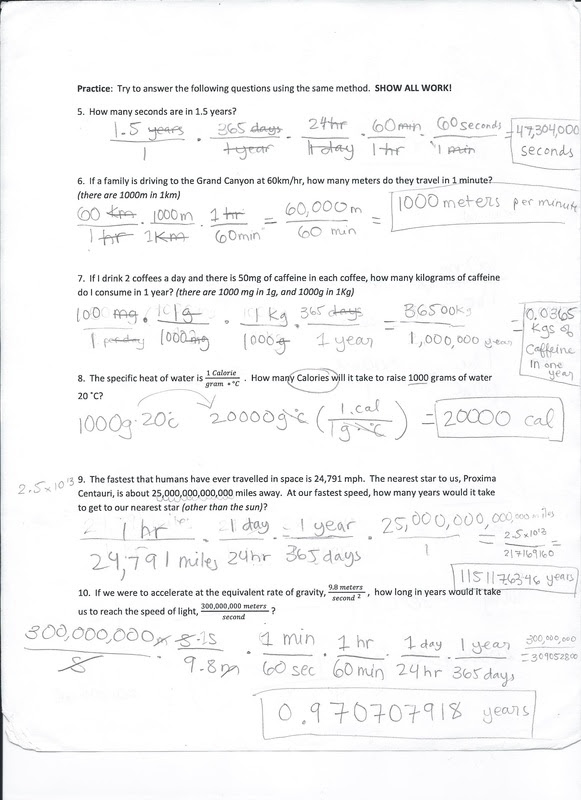 Practice: Try to answer the following questions using the same method. SHOW ALL WORK!
5. How many seconds are in 1.5 years?
1.5 years / 1 · 365 days / 1 year · 24 hr / 1 day · 60 min / 1 hr · 60 seconds / 1 min = 47,304,000 seconds
6. If a family is driving to the Grand Canyon at 60km/hr, how many meters do they travel in 1 minute?
(there are 1000m in 1km)
60 km / 1 hr · 1000 m / 1 Km · 1 hr / 60 min = 60,000 m / 60 min = 1000 meters per minute
7. If I drink 2 coffees a day and there is 50mg of caffeine in each coffee, how many kilograms of caffeine
do I consume in 1 year? (there are 1000 mg in 1g, and 1000g in 1Kg)
100 mg / 1 per day · 1 g / 1000 mg · 1 Kg / 1000 g · 365 days / 1 year = 36500 Kg / 1,000,000 year = 0.0365 Kgs of Caffeine in one year
8. The specific heat of water is 1 Calorie / gram •°C . How many Calories will it take to raise 1000 grams of water
20 °C?
1000g · 20c 20000g·c ( 1 cal / 1g·c ) = 20000 cal
2.5 x 10^13
9. The fastest that humans have ever travelled in space is 24,791 mph. The nearest star to us, Proxima
Centauri, is about 25,000,000,000,000 miles away. At our fastest speed, how many years would it take
to get to our nearest star (other than the sun)?
1 hr / 24,791 miles · 1 day / 24hr · 1 year / 365 days · 25,000,000,000,000 miles / 1 = 2.5 x 10^13 / 217169160 =
115117.6346 years
10. If we were to accelerate at the equivalent rate of gravity, 9.8 meters / second ² , how long in years would it take
us to reach the speed of light, 300,000,000 meters / second ?
300,000,000 m / s · s·1s / 9.8 m · 1 min / 60 sec · 1 hr / 60 min · 1 day / 24 hr · 1 year / 365 days 300,000,000 ÷ 309052800
0.970707918 years